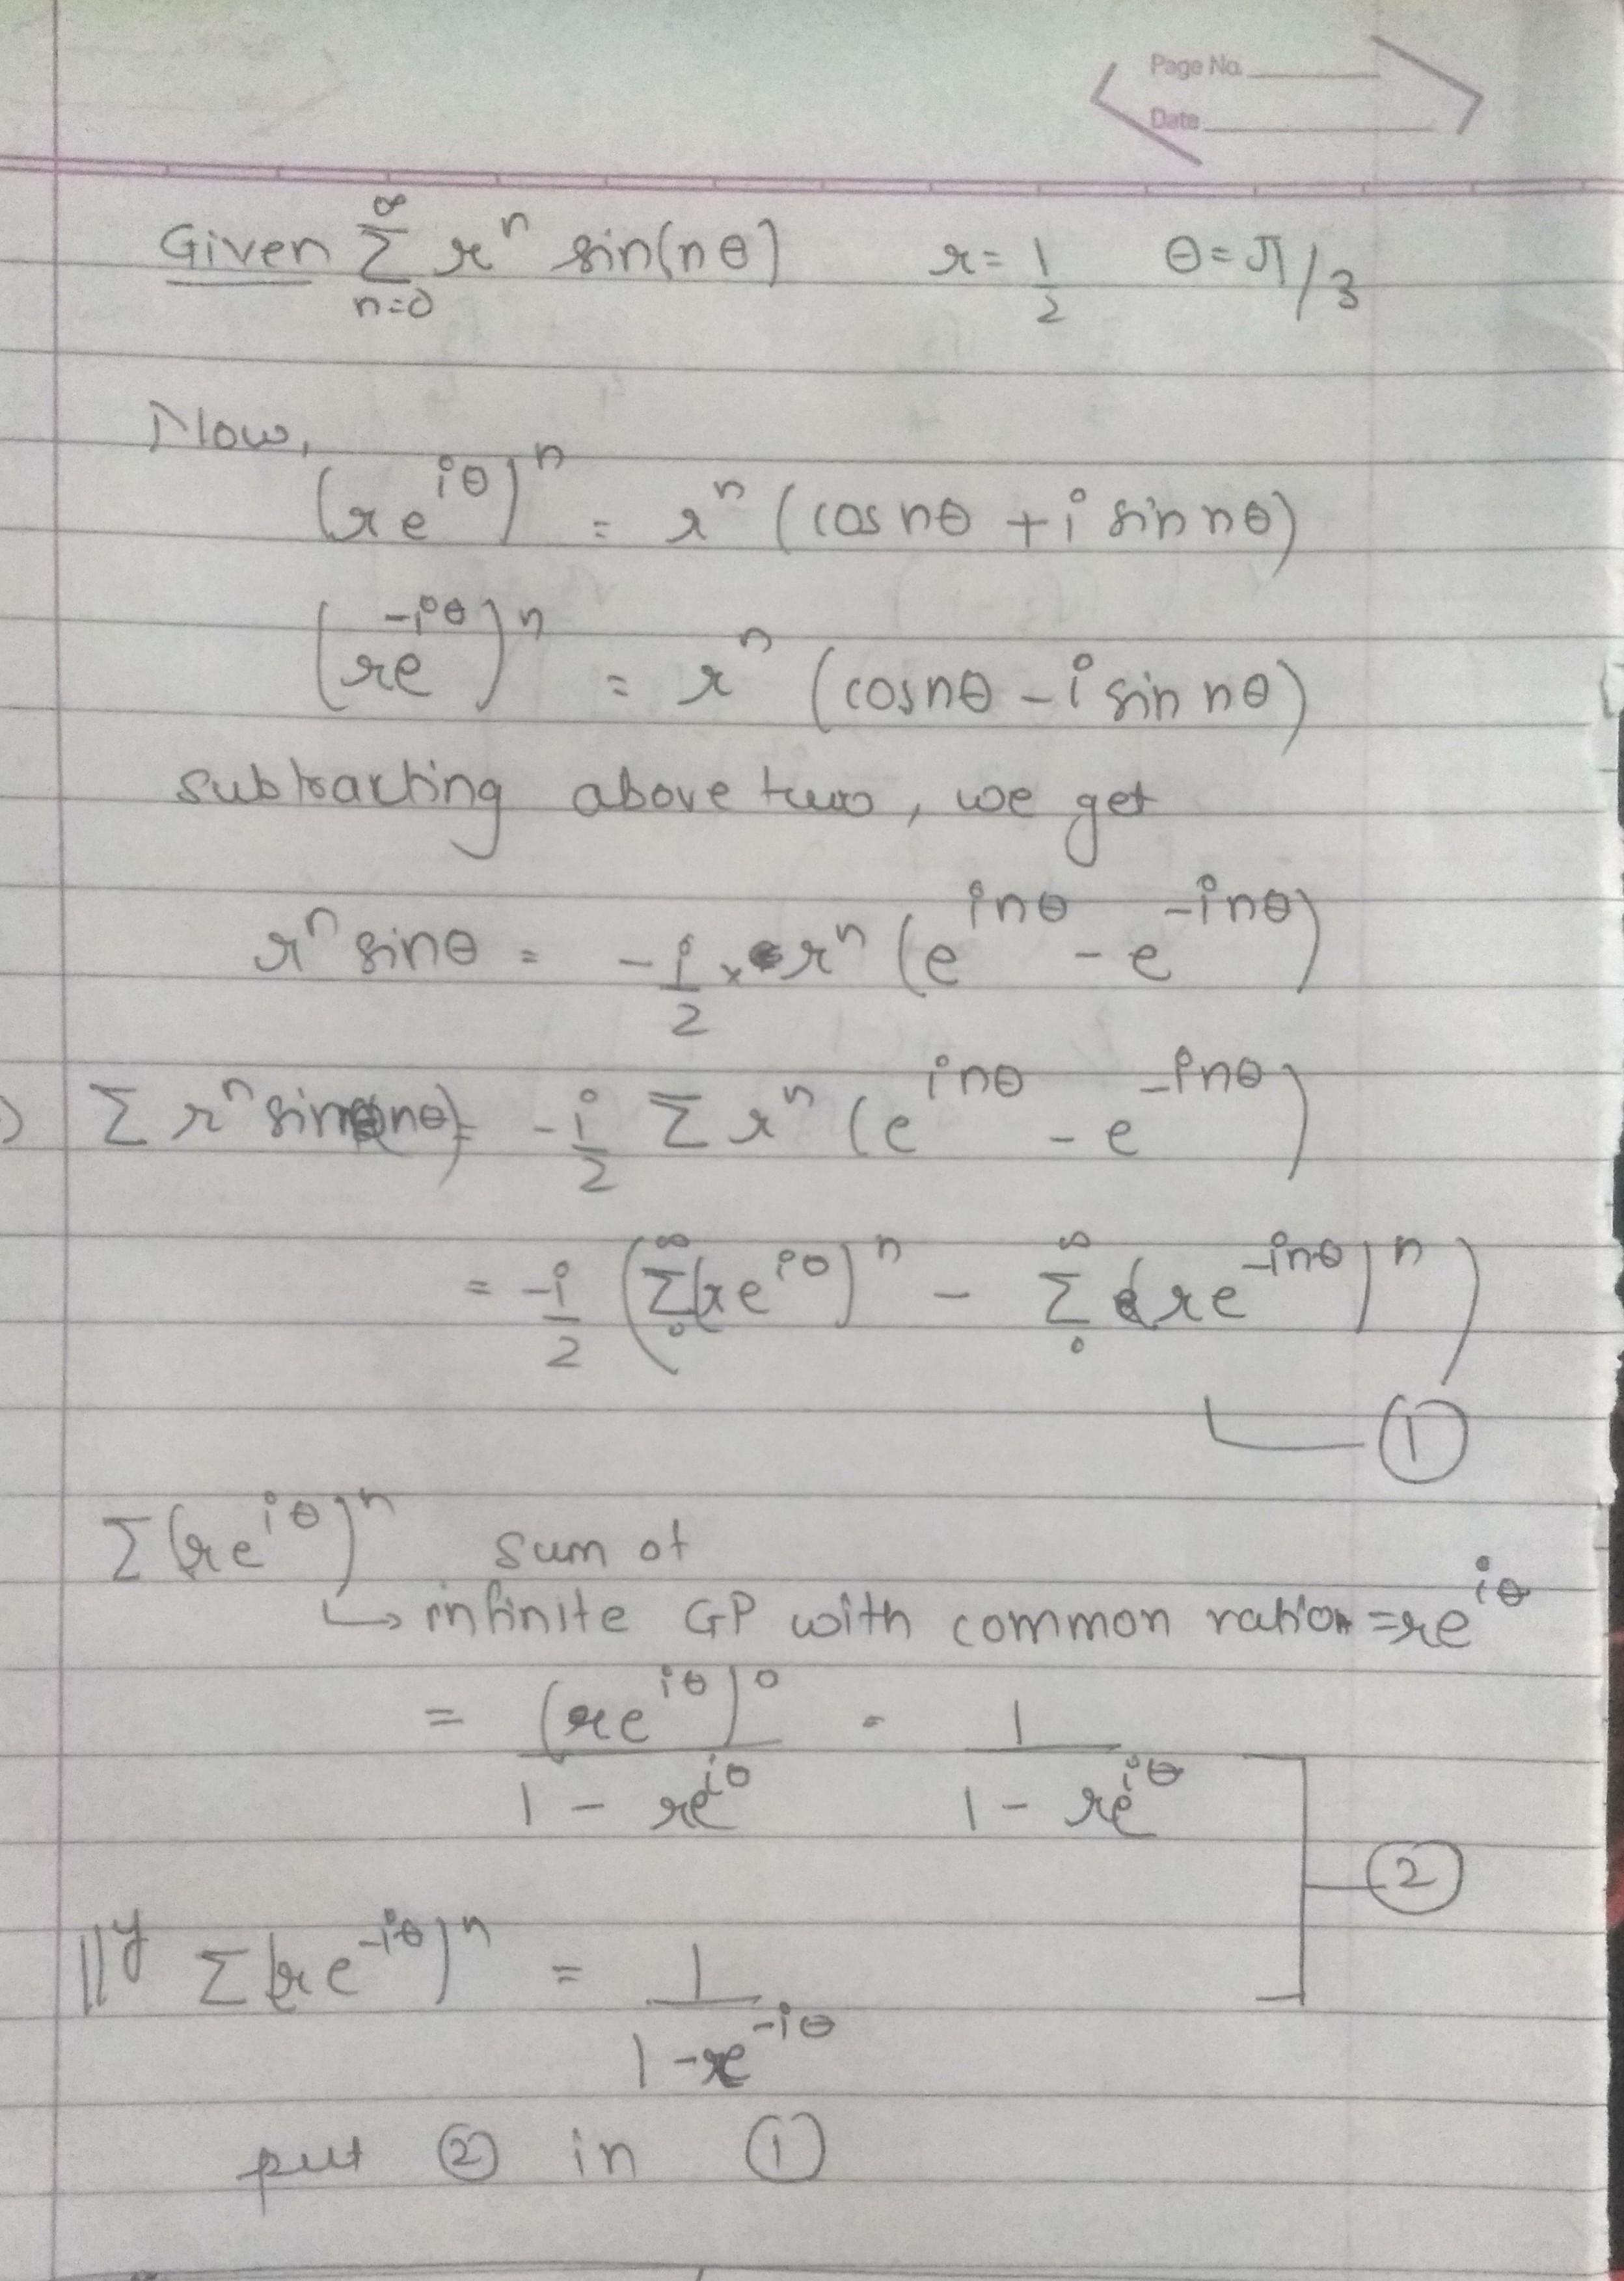 Page No.
Date
Given ∞∑n=0 r^n sin(nθ) r = 1/2 θ = π/3
Now,
(re^iθ)^n = r^n (cos nθ + i sin nθ)
(re^-iθ)^n = r^n (cos nθ - i sin nθ)
subtracting above two, we get
r^n sin θ = -i/2 × r^n (e^inθ - e^-inθ)
∑ r^n sin(nθ) = -i/2 ∑ r^n (e^inθ - e^-inθ)
= -i/2 (∞∑0 (re^iθ)^n - ∞∑0 (re^-inθ)^n)
①
∑(re^iθ)^n sum of
↳ infinite GP with common ratio = re^iθ
= (re^iθ)^0 / (1 - re^iθ) = 1 / (1 - re^iθ)
②
||y ∑(re^-iθ)^n = 1 / (1 - re^-iθ)
put ② in ①